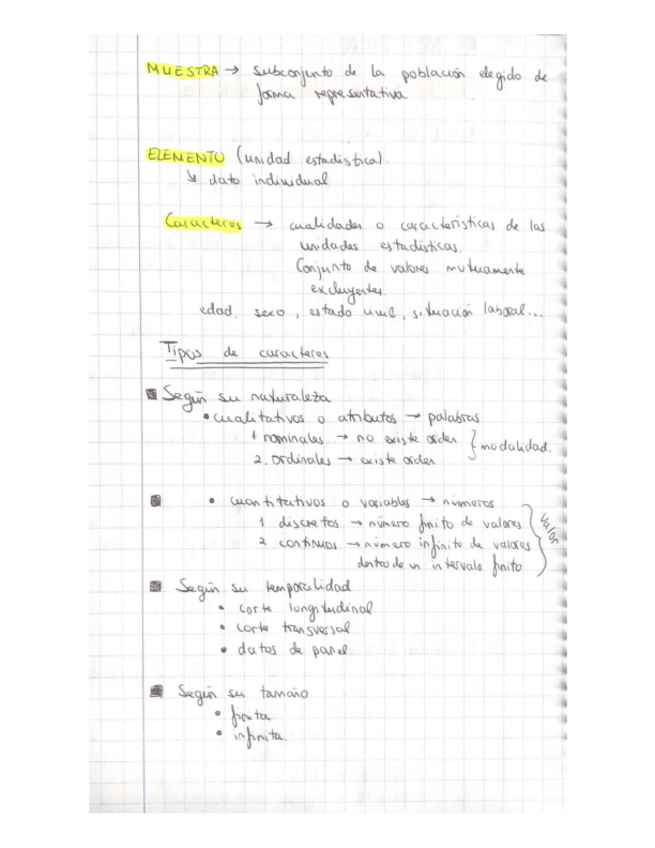 MUESTRA → subconjunto de la población elegido de
forma representativa
ELEMENTO (unidad estadística).
↳ dato individual
Caracteres → cualidades o características de las
unidades estadísticas.
Conjunto de valores mutuamente
excluyentes
edad, sexo, estado civil, situación laboral...
Tipos de caracteres
Según su naturaleza
• cualitativos o atributos → palabras
1 nominales → no existe orden
2. ordinales → existe orden
} modalidad.
• cuantitativos o variables → números
1 discretos → número finito de valores
2 continuos → número infinito de valores
dentro de un intervalo finito
} valor
Según su temporalidad
• corte longitudinal
• corte transversal
• datos de panel
Según su tamaño
• finita
• infinita.